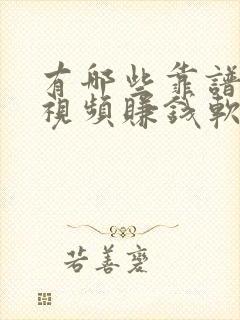 有哪些靠譜
視頻賺錢軟
若善甕